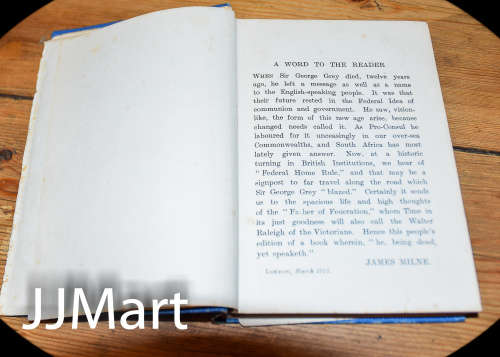 A WORD TO THE READER
WHEN Sir George Grey died, twelve years
ago, he left a message as well as a name
to the English-speaking people. It was that
their future rested in the Federal Idea of
communion and government. He saw, vision-
like, the form of this new age arise, because
changed needs called it. As Pro-Consul he
laboured for it unceasingly in our over-sea
Commonwealths, and South Africa has most
lately given answer. Now, at a historic
turning in British Institutions, we hear of
"Federal Home Rule," and that may be a
signpost to far travel along the road which
Sir George Grey "blazed." Certainly it sends
us to the spacious life and high thoughts
of the "Father of Federation," whom Time in
its just goodness will also call the Walter
Raleigh of the Victorians. Hence this people's
edition of a book wherein, "he, being dead,
yet speaketh."
JAMES MILNE.
London, March
JJMart